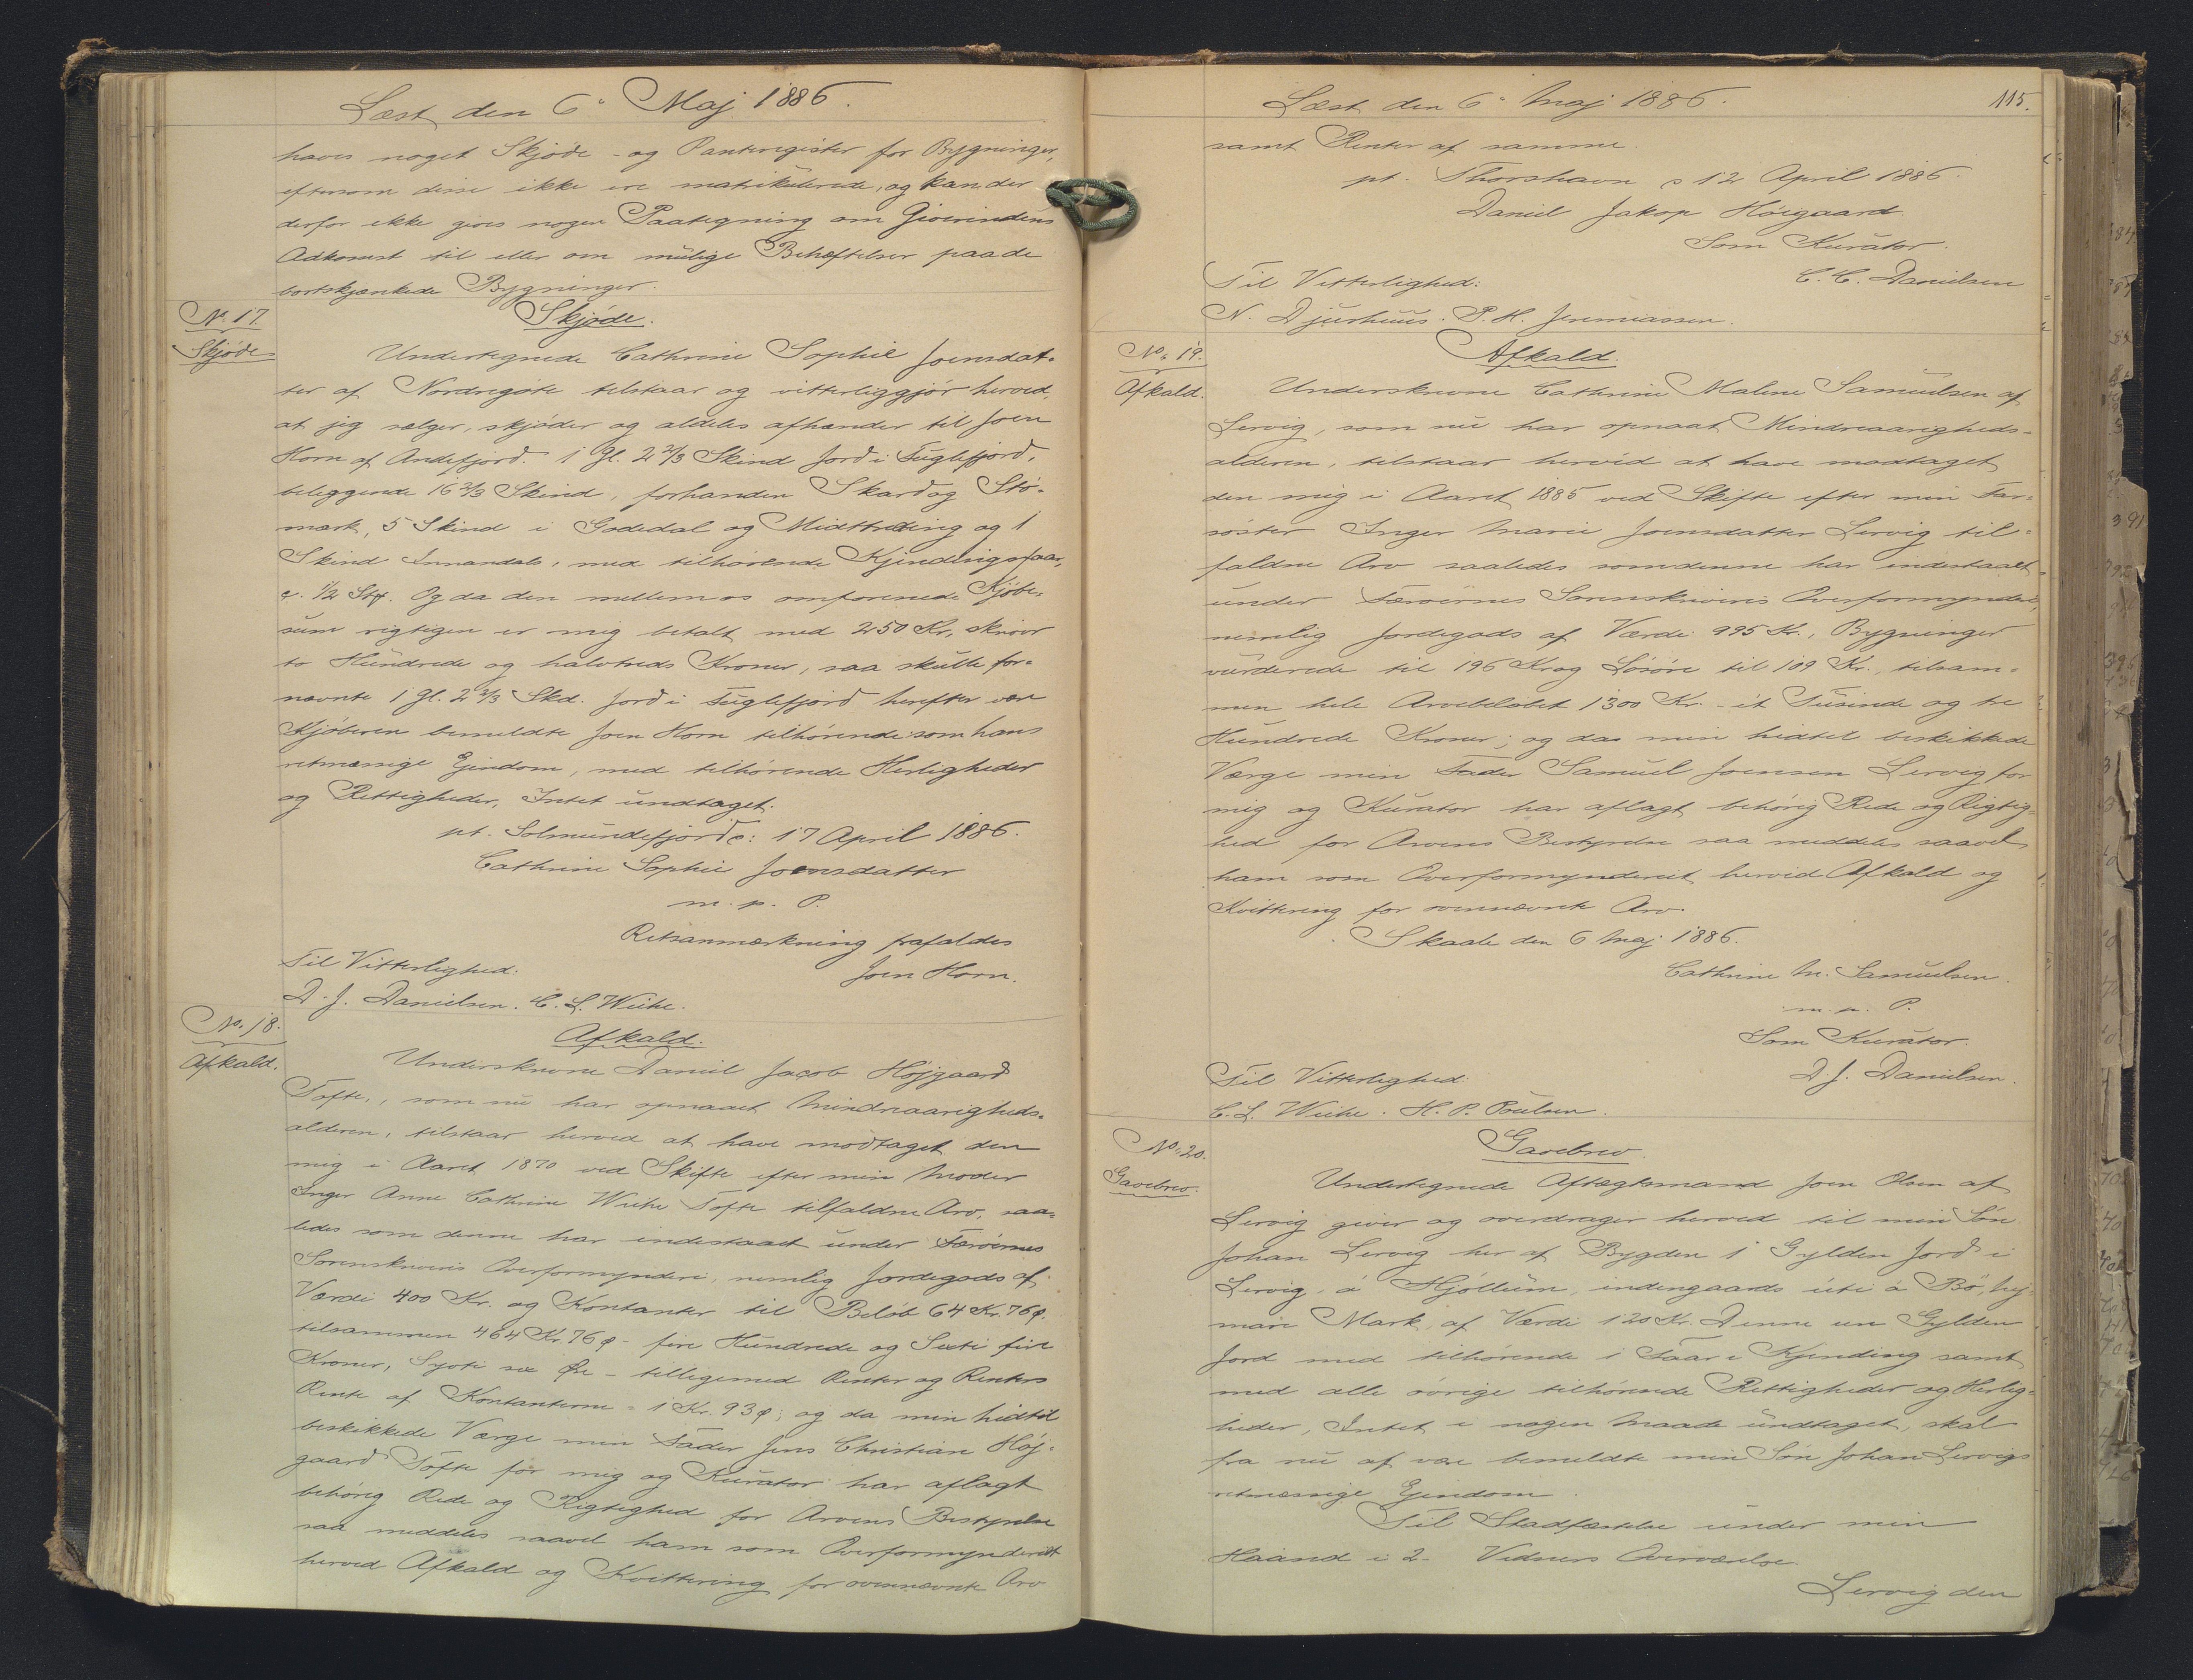 Læst den 6' Maj 1886.
haves noget Skjøde- og Panteregister for Bygninger,
eftersom disse ikke ere matrikulerede, og kan der
derfor ikke gives nogen Paategning om Giverindens
Adkomst til eller om mulige Behæftelser paa de
bortskjænkede Bygninger.
No. 17.
Skjøde
Skjøde.
Undertegnede Cathrine Sophie Joensdat-
ter af Nordregøte tilstaar og vitterliggjør herved,
at jeg sælger, skjøder og aldeles afhænder til Joen
Horn af Andefjord. 1 Gl. 2 2/3 Skind Jord i Fuglefjord,
beliggende 16 2/3 Skind, forhanden Skard og Stó-
mark, 5 Skind i Godedal og Midttræding og 1
Skind Innandals, med tilhørende Kjendingsfaar,
c. 1/2 Stk. Og da den mellem os omforenede Kjøbe-
sum rigtigen er mig betalt med 250 Kr., skriver
to Hundrede og halvtreds Kroner, saa skulle for-
nævnte 1 Gl. 2 2/3 Skd. Jord i Fuglefjord herefter være
Kjøberen bemeldte Joen Horn tilhørende som hans
retmæssige Ejendom, med tilhørende Herligheder
og Rettigheder, Intet undtaget.
pt. Solmundefjord d: 17 April 1886.
Cathrine Sophie Joensdatter
m. p. P.
Retsanmærkning frafaldes
Til Vitterlighed: Joen Horn.
D. J. Danielsen. C. L. Weihe.
No. 18.
Afkald.
Afkald.
Underskrevne Daniel Jacob Højgaard
Tofte, som nu har opnaaet Mindreaarigheds-
alderen, tilstaar herved at have modtaget den
mig i Aaret 1870 ved Skifte efter min Moder
Inger Anne Cathrine Weihe Tofte tilfaldne Arv, saa-
ledes som denne har indestaaet under Færøernes
Sorenskriveris Overformynderi, nemlig Jordegods af
Værdi 400 Kr. og Kontanter til Beløb 64 Kr. 76 ø.
tilsammen 464 Kr. 76 ø - fire Hundrede og Sexti fire
Kroner, Syvti sex Øre - tilligemed Renter og Renters
Rente af Kontanterne = 1 Kr. 93 ø; og da min hidtil
beskikkede Værge min Fader Jens Christian Høj-
gaard Tofte for mig og Kurator har aflagt
behørig Rede og Rigtighed for Arvens Bestyrelse
saa meddeles saavel ham som Overformynderiet
herved Afkald og Kvittering for ovennævnte Arv
Læst den 6' Maj 1886.
115.
samt Renter af samme.
pt. Thorshavn d 12 April 1886.
Daniel Jakop Høigaard
Som Kurator.
Til Vitterlighed: C. C. Danielsen
N. Djurhuus. P. H. Jeremiassen.
No. 19.
Afkald.
Afkald.
Underskrevne Cathrine Malene Samuelsen af
Lervig, som nu har opnaaet Mindreaarigheds-
alderen, tilstaar herved at have modtaget
den mig i Aaret 1885 ved Skifte efter min Far-
søster Inger Marie Joensdatter Lervig til-
faldne Arv saaledes som denne har indestaaet
under Færøernes Sorenskriveris Overformynderi,
nemlig Jordegods af Værdi 995 Kr., Bygninger
vurderede til 196 Kr. og Løsøre til 109 Kr., tilsam-
men hele Arvebeløbet 1300 Kr. - ét Tusinde og tre
Hundrede Kroner; og da min hidtil beskikkede
Værge min Fader Samuel Joensen Lervig for
mig og Kurator har aflagt behørig Rede og Rigtig-
hed for Arvens Bestyrelse saa meddeles saavel
ham som Overformynderiet herved Afkald og
Kvittering for ovennævnte Arv.
Skaale den 6 Maj 1886.
Cathrine M. Samuelsen.
m. p. P.
Som Kurator.
Til Vitterlighed: D. J. Danielsen.
C. L. Weihe. H. P. Poulsen.
No. 20.
Gavebrev.
Gavebrev.
Undertegnede Aftægtsmand Joen Olsen af
Lervig giver og overdrager herved til min Søn
Johan Lervig her af Bygden 1 Gylden Jord i
Lervig, á Hjøllum, indengaards úti á Bö,
mare Mark, af Værdi 120 Kr. Denne ene Gylden
Jord med tilhørende 1 Faar i Kjending samt
med alle øvrige tilhørende Rettigheder og Herlig-
heder, Intet i nogen Maade undtaget, skal
fra nu af være bemeldte min Søn Johan Lervigs
retmæssige Ejendom.
Til Stadfæstelse under min
Haand i 2. Vidners Overværelse.
Lervig den